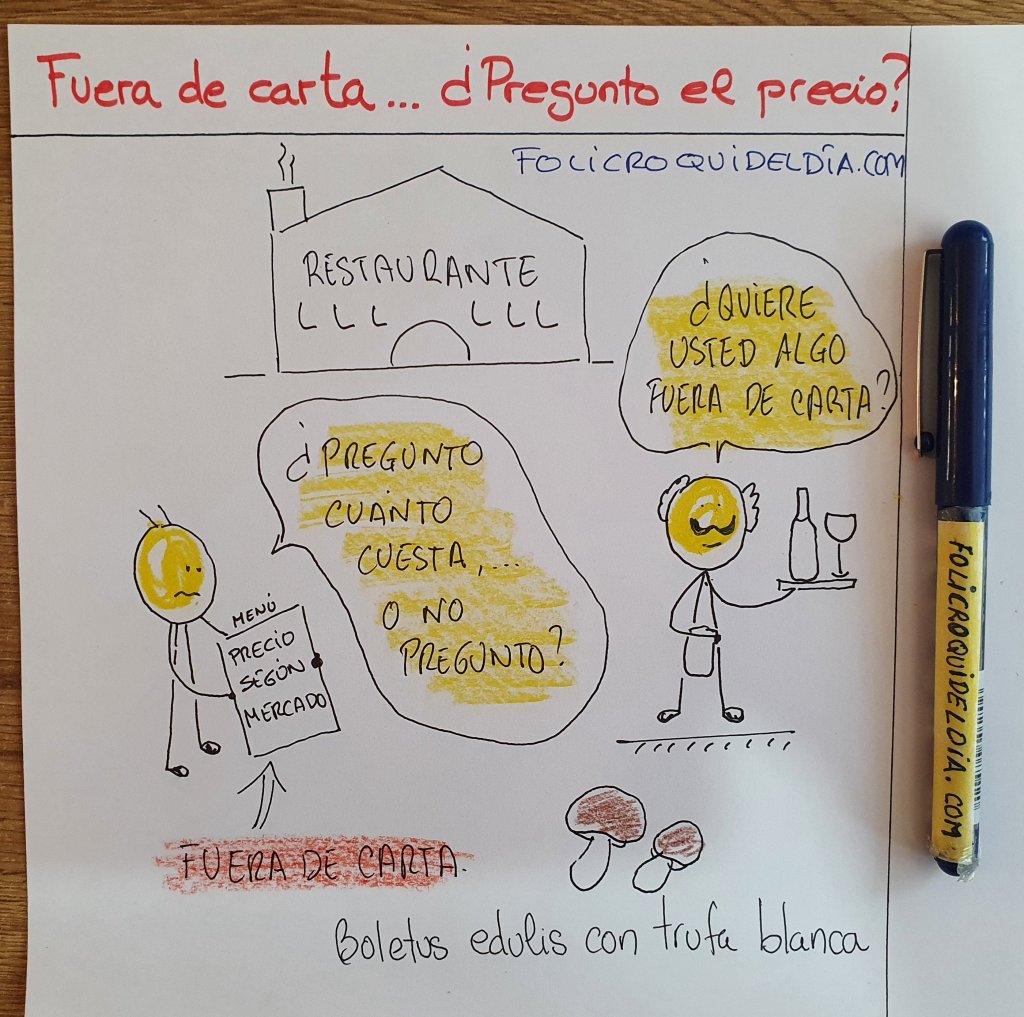 Fuera de carta... ¿Pregunto el precio?
FOLICROQUIDELDÍA.COM
RESTAURANTE
¿QUIERE
USTED ALGO
FUERA DE CARTA?
¿PREGUNTO
CUÁNTO
CUESTA,...
O NO
PREGUNTO?
MENÚ
PRECIO
SEGÚN
MERCADO
FUERA DE CARTA.
Boletus edulis con trufa blanca
FOLICROQUIDELDÍA.COM